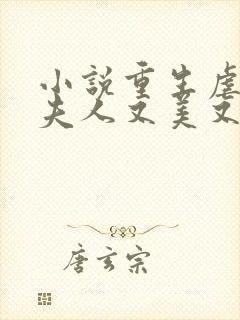 小說重生虐
夫人又美又
唐玄宗